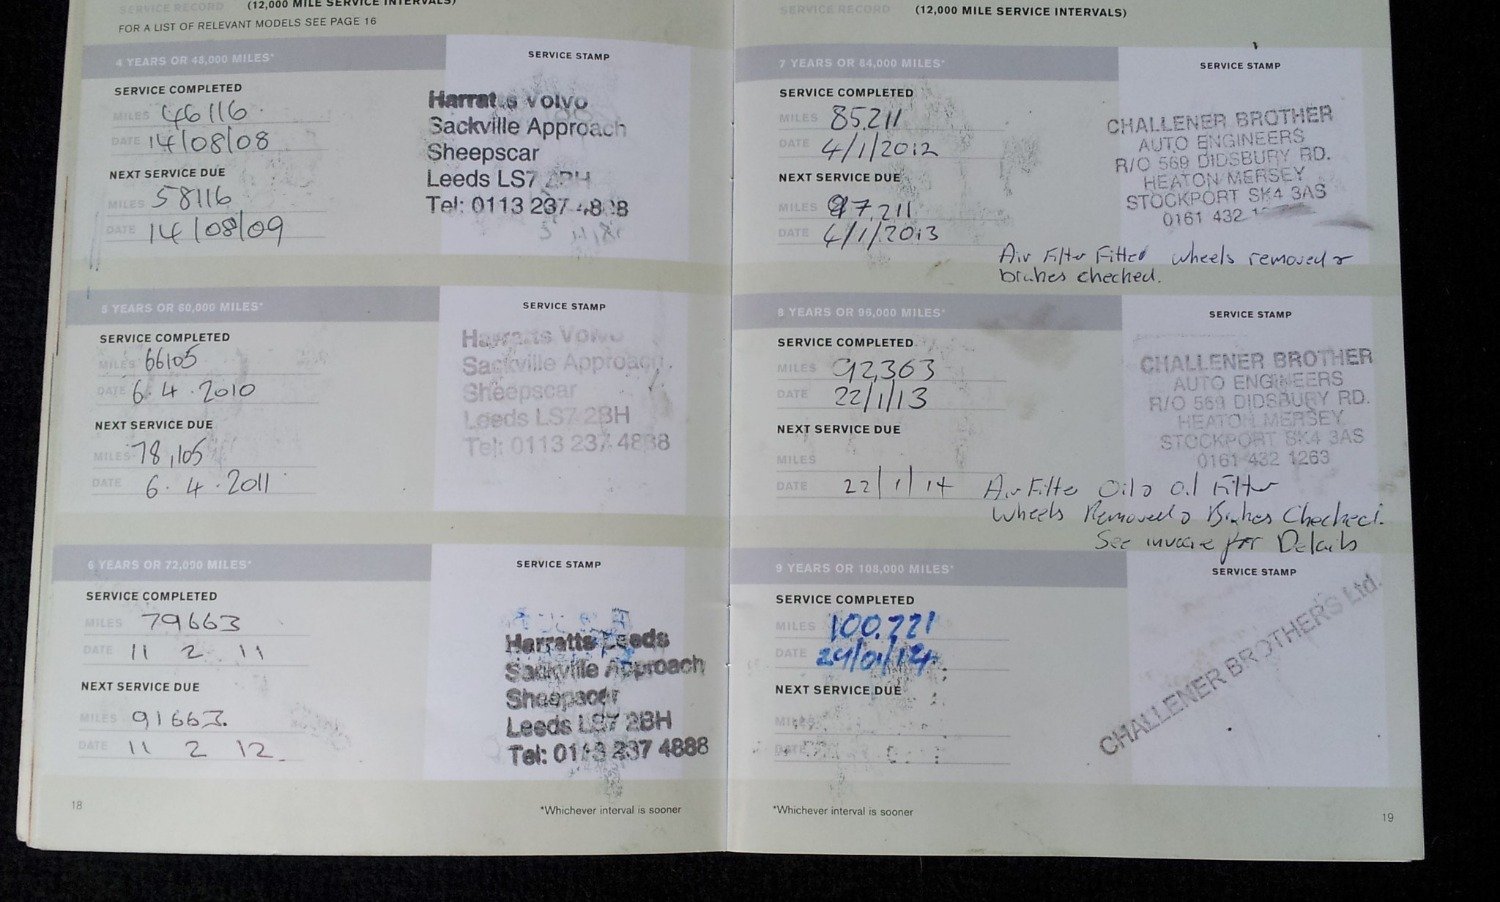 SERVICE RECORD (12,000 MILE SERVICE INTERVALS)
FOR A LIST OF RELEVANT MODELS SEE PAGE 16
4 YEARS OR 48,000 MILES*
SERVICE STAMP
SERVICE COMPLETED
MILES 46116
DATE 14/08/08
NEXT SERVICE DUE
MILES 58116
DATE 14/08/09
Harratts Volvo
Sackville Approach
Sheepscar
Leeds LS7 2BH
Tel: 0113 237 4888
5 YEARS OR 60,000 MILES*
SERVICE STAMP
SERVICE COMPLETED
MILES 66105
DATE 6.4.2010
NEXT SERVICE DUE
MILES 78,105
DATE 6.4.2011
Harratts Volvo
Sackville Approach
Sheepscar
Leeds LS7 2BH
Tel: 0113 237 4888
6 YEARS OR 72,000 MILES*
SERVICE STAMP
SERVICE COMPLETED
MILES 79663
DATE 11 2 11
NEXT SERVICE DUE
MILES 91663.
DATE 11 2 12
Harratts Leeds
Sackville Approach
Sheepscar
Leeds LS7 2BH
Tel: 0113 237 4888
18
*Whichever interval is sooner
SERVICE RECORD (12,000 MILE SERVICE INTERVALS)
7 YEARS OR 84,000 MILES*
SERVICE STAMP
SERVICE COMPLETED
MILES 85.211
DATE 4/1/2012
NEXT SERVICE DUE
MILES 97.211
DATE 4/1/2013
CHALLENER BROTHER
AUTO ENGINEERS
R/O 569 DIDSBURY RD.
HEATON MERSEY
STOCKPORT SK4 3AS
0161 432
Air Filter Fitted wheels removed &
brakes checked.
8 YEARS OR 96,000 MILES*
SERVICE STAMP
SERVICE COMPLETED
MILES 92,363
DATE 22/1/13
NEXT SERVICE DUE
MILES
DATE 22/1/14
CHALLENER BROTHER
AUTO ENGINEERS
R/O 569 DIDSBURY RD.
HEATON MERSEY
STOCKPORT SK4 3AS
0161 432 1263
Air Filter Oil & Oil Filter
Wheels Removed & Brakes Checked.
See invoice for Details
9 YEARS OR 108,000 MILES*
SERVICE STAMP
SERVICE COMPLETED
MILES 100.221
DATE 24/01/14
NEXT SERVICE DUE
MILES
DATE
CHALLENER BROTHERS Ltd.
*Whichever interval is sooner
19